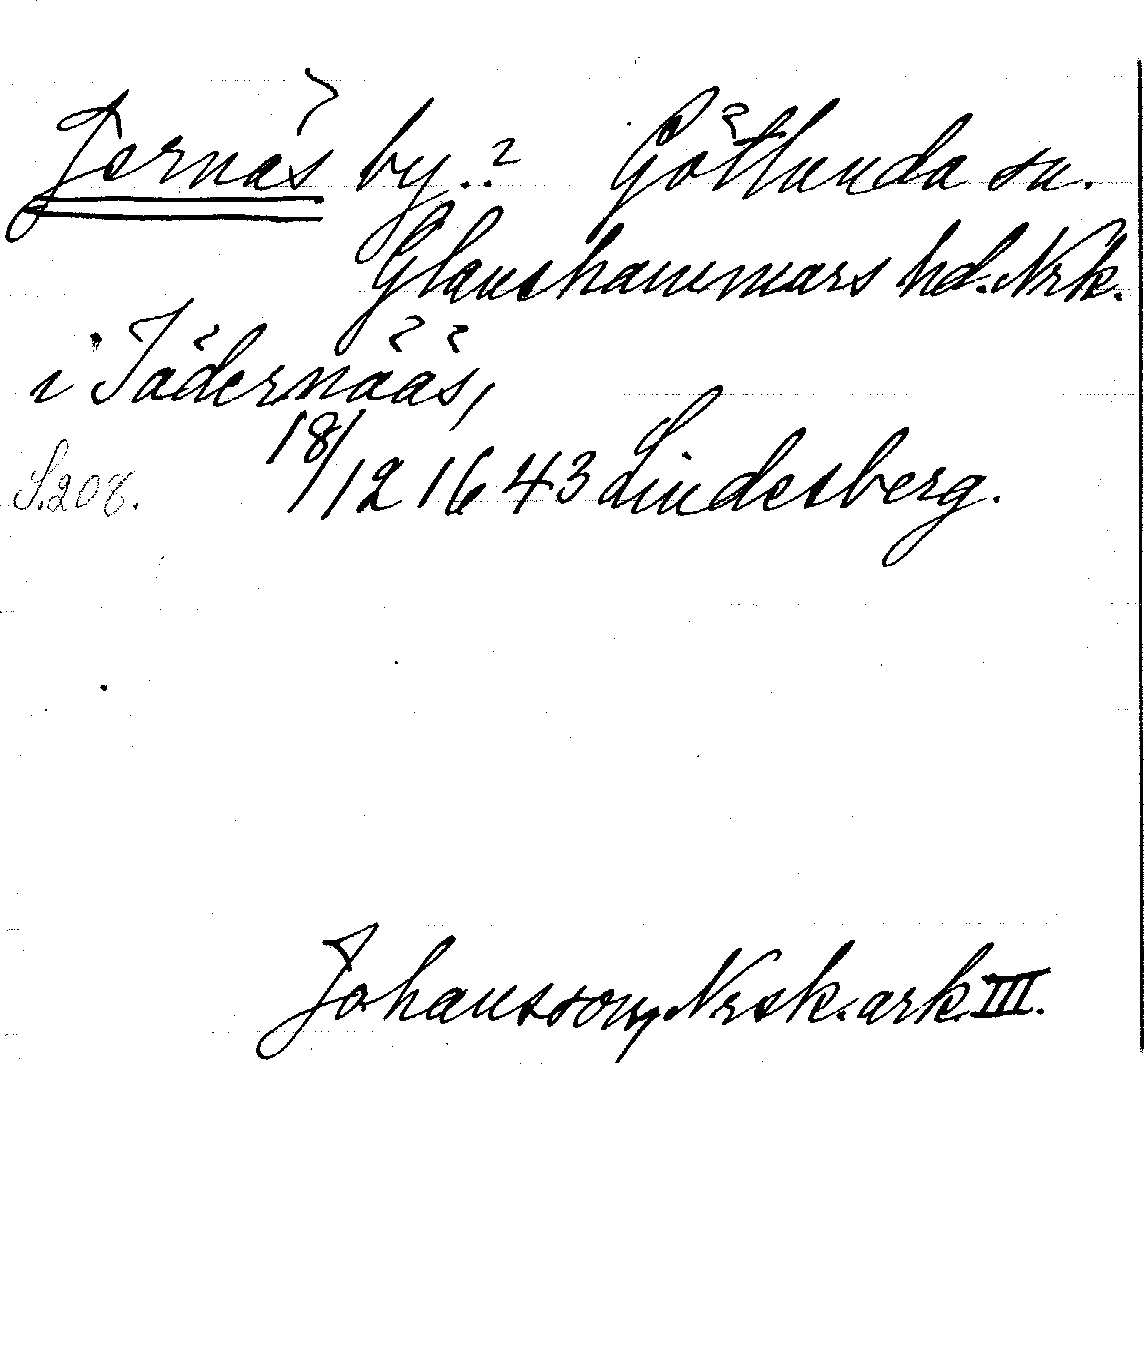 Jernäs by..? Götlunda sn.
Glanshammars hd. Nrk.
i Jädernääs,
S. 208. 18/12 1643 Lindesberg.
Johansson, Nrsk. ark III.